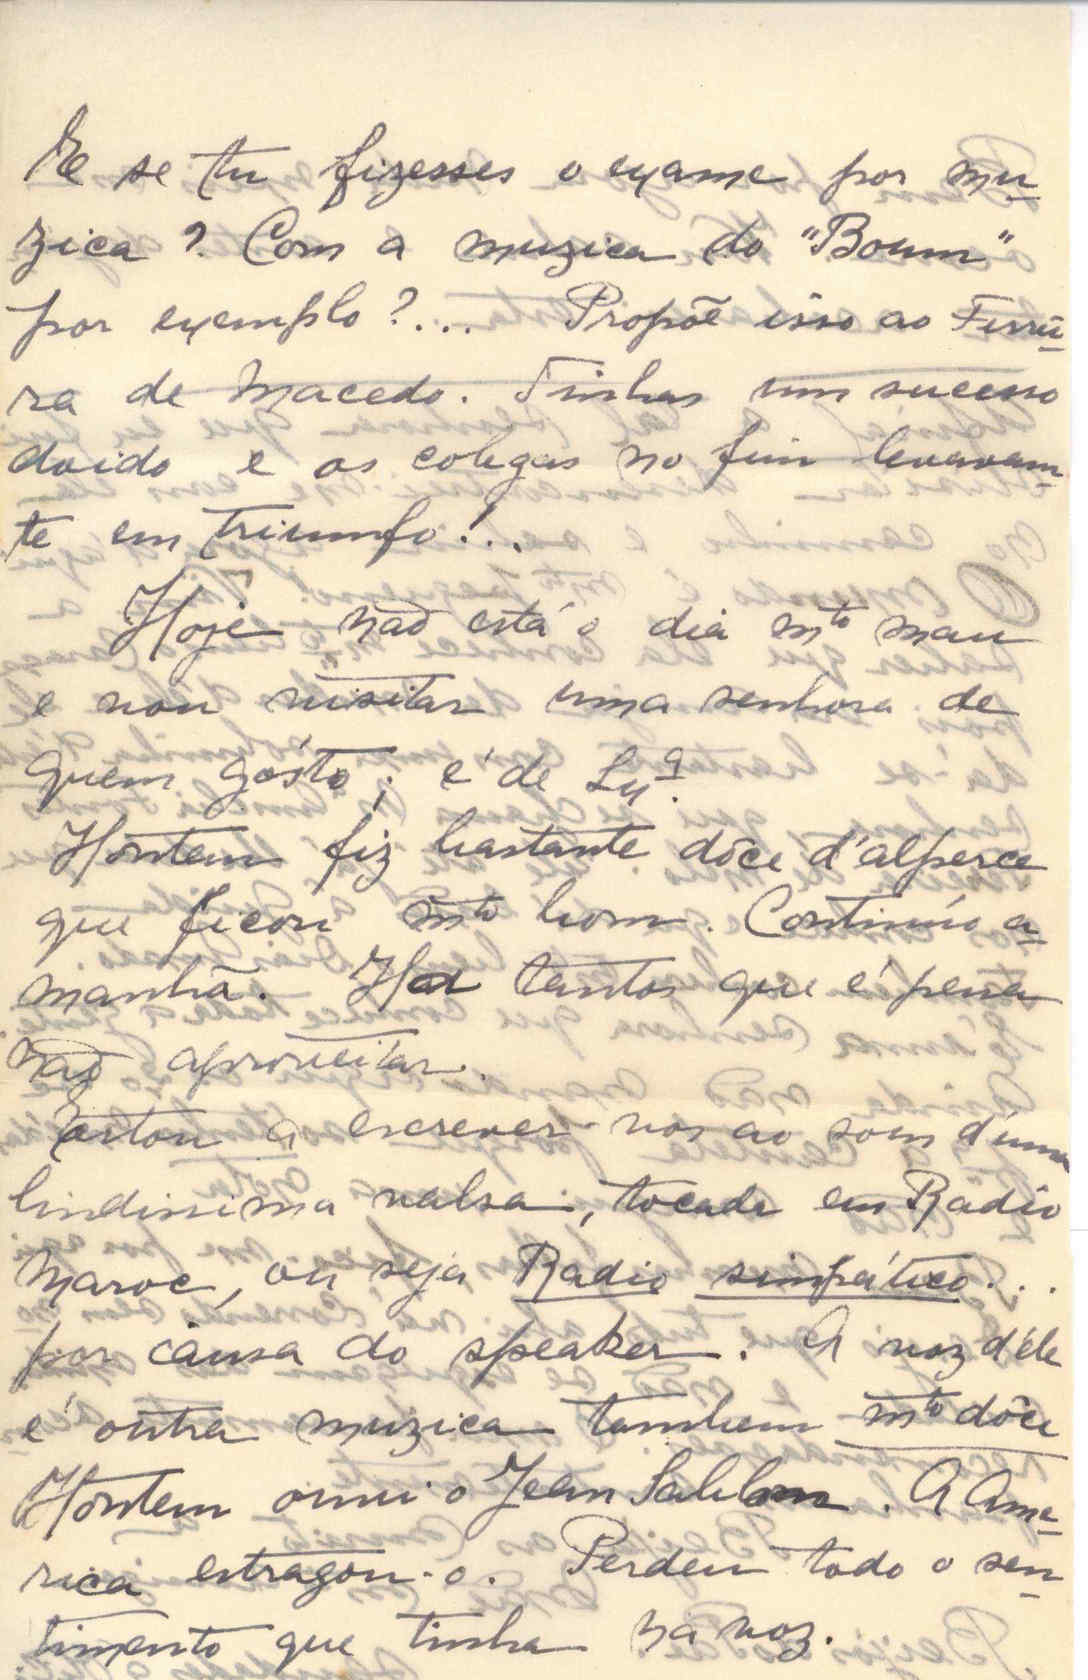 E se tu fizesses o exame por mu-
zica? Com a muzica do "Boum"
por exemplo?... Propõe isso ao Ferrei-
ra de Macedo. Tinhas um sucesso
doido e os colegas no fim levavam-
te em triumfo!..
Hoje não está o dia mto mau
e vou visitar uma senhora de
quem gósto; é de Lxª.
Hontem fiz bastante dôce d'alperce
que ficou mto bom. Continúo a-
manhã. Ha tantos que é pena
não aproveitar.
Estou a escrever-vos ao som d'uma
lindissima valsa, tocada em Radio
Maroc, ou seja Radio simpático...
por causa do speaker. A voz d'éle
é outra muzica tambem mto dôce
Hontem ouvi o Jean Sablon. A Ame-
rica estragou-o. Perdeu todo o sen-
timento que tinha na voz.